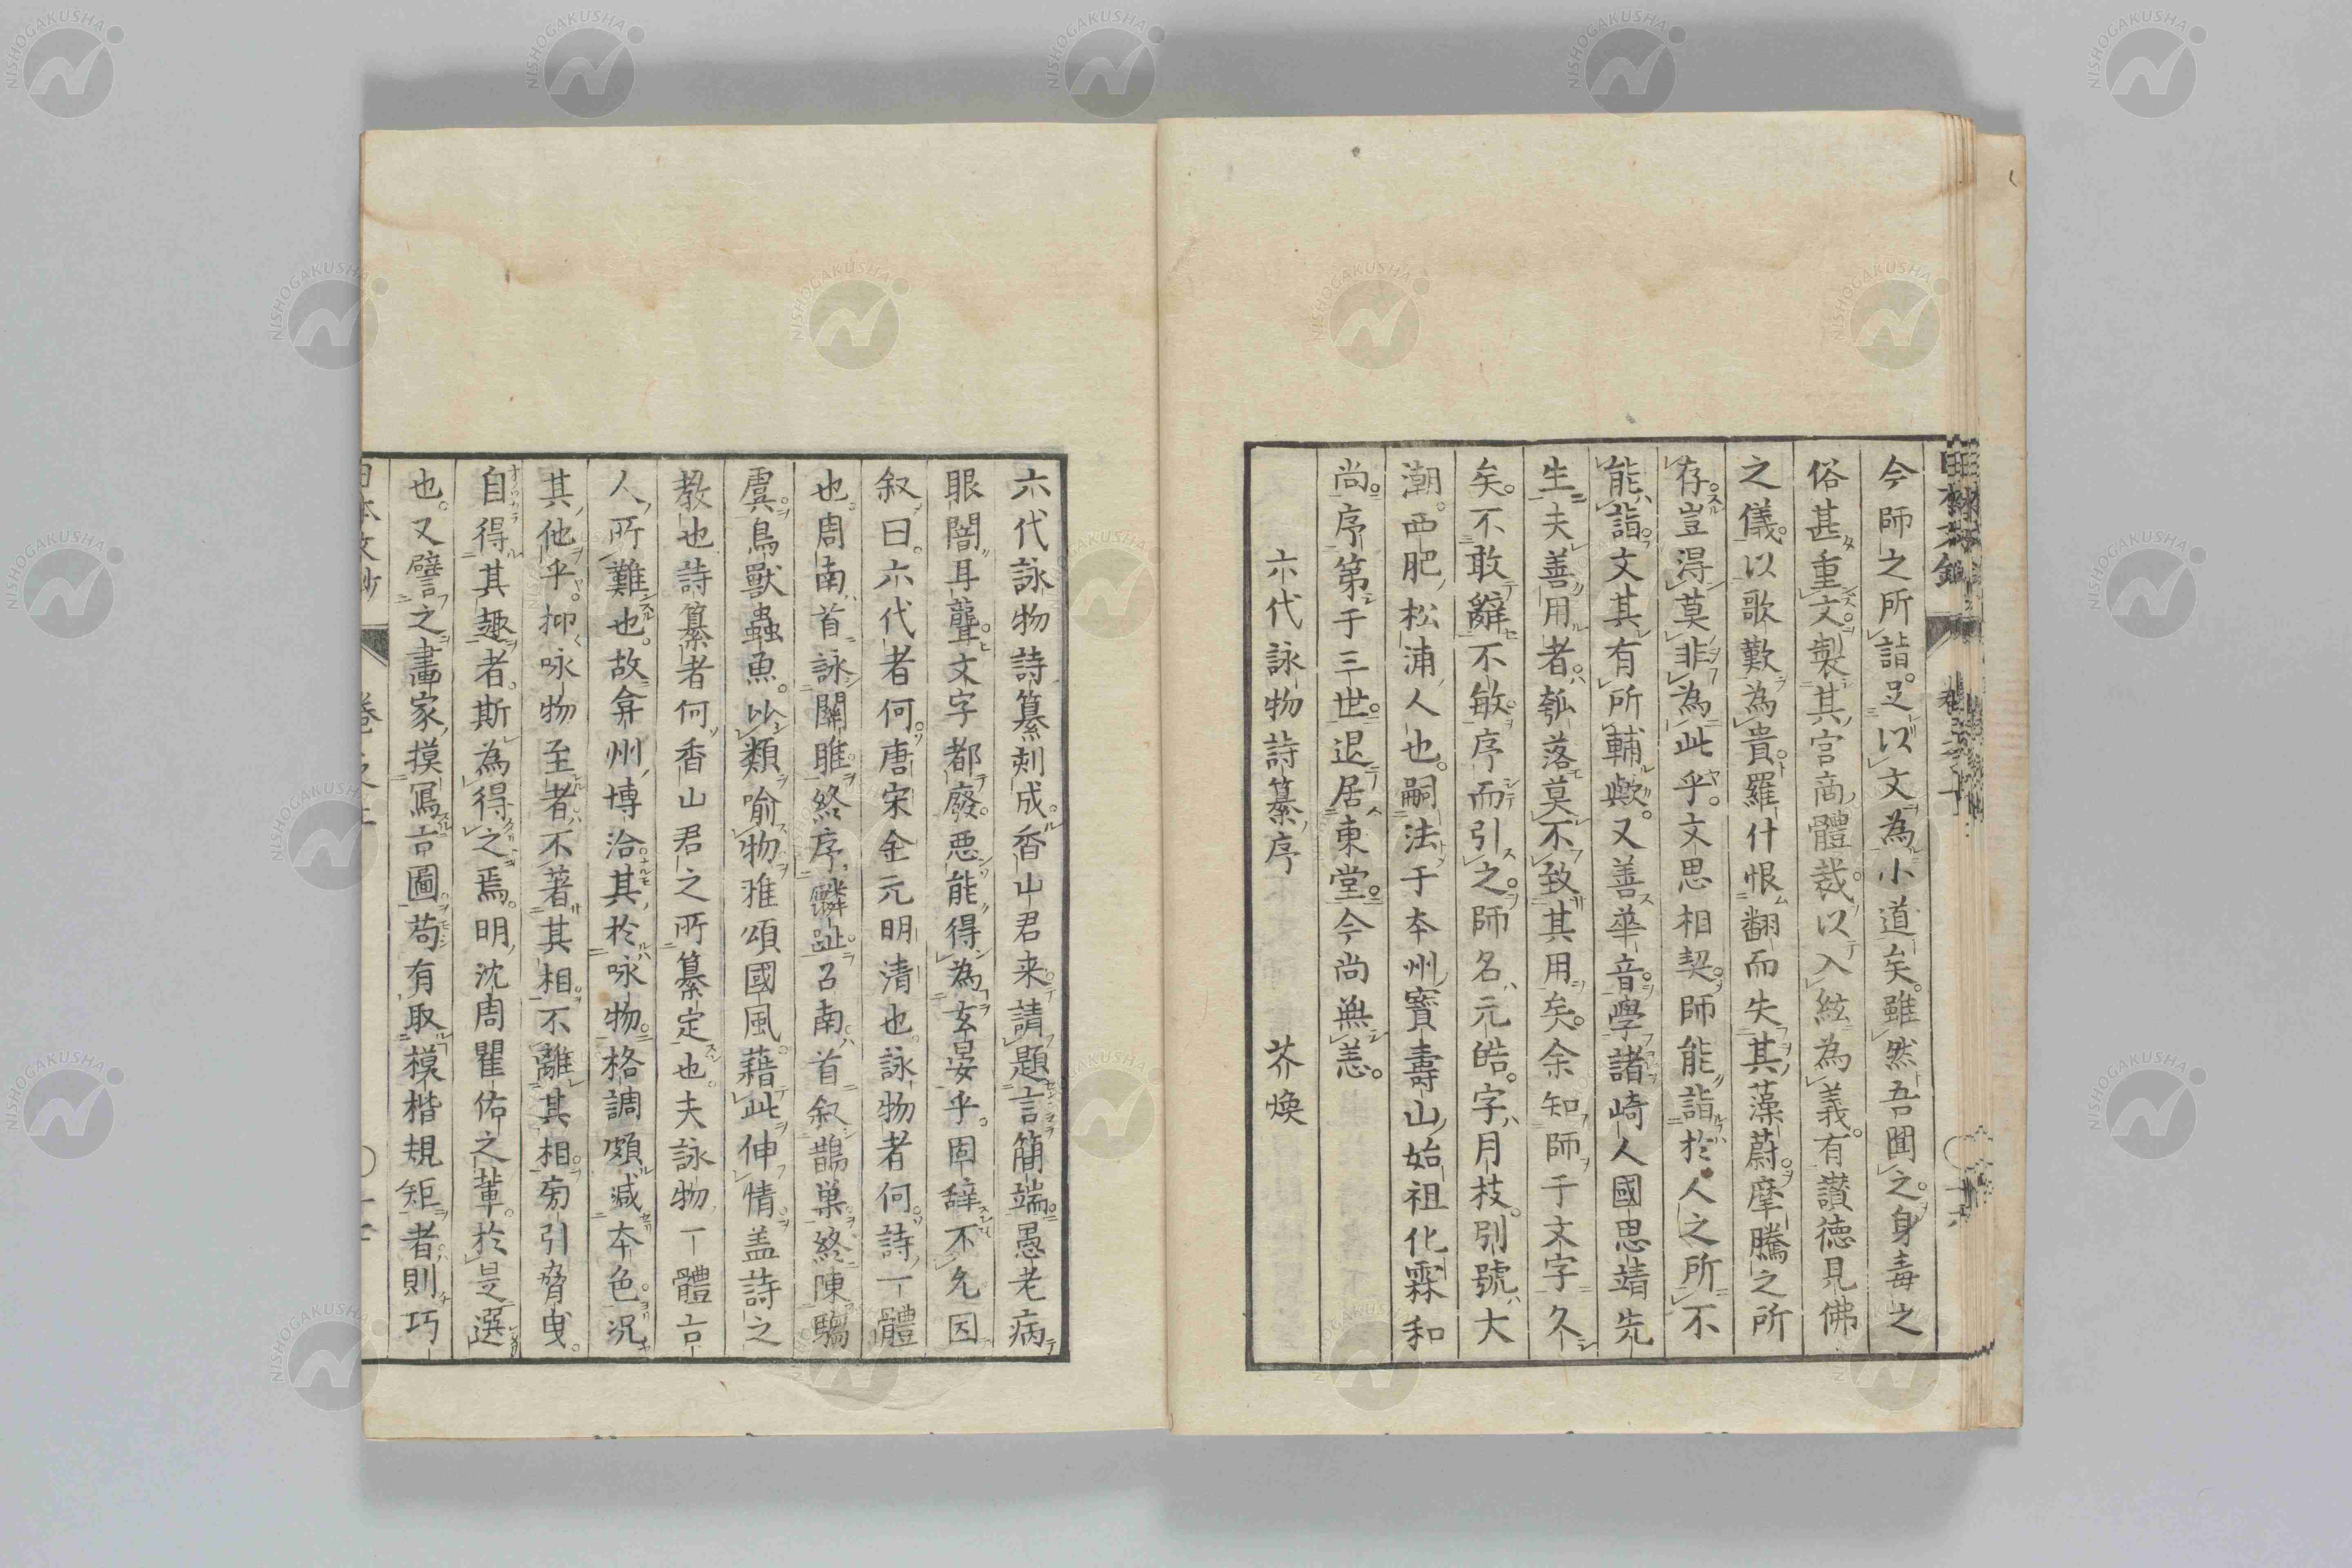 今師之所詣足以文為小道矣雖然吾國之身毒之
俗甚重文製其宮商體裁以入絃為義有讚德見佛
之儀以歌歎為貴羅什恨翻而失其藻蔚摩騰之所
存豈得莫非為此乎文思相契師能詣於人之所不
能詣文其有所輔歟又善華音學諸崎人國思靖先
生夫善用者瓠落莫不致其用矣余知師于文字久
矣不敢辭不敏序而引之師名元皓字月枝別號大
潮西肥松浦人也嗣法于本州寳壽山始祖化霖和
尚序第于三世退居東堂今尚無恙
六代詠物詩纂序 芥煥
六代詠物詩纂刻成香山君来請題言簡端愚老病
眼闇耳聾文字都廢惡能得為玄晏乎固辞不允因
叙曰六代者何唐宋金元明清也詠物者何詩一體
也周南首詠關雎終序麟趾召南首叙鵲巢終陳騶
虞鳥獸蟲魚以類喻物雅頌國風藉此伸情盖詩之
教也詩纂者何香山君之所纂定也夫詠物一體古
人所難也故弇州博洽其於咏物格調頗減本色况
其他乎抑咏物至者不著其相不離其相旁引脅曳
自得其趣者斯為得之焉明沈周瞿佑之輩於是選
也又譬之畫家摸寫古圖苟有取模楷規矩者則巧